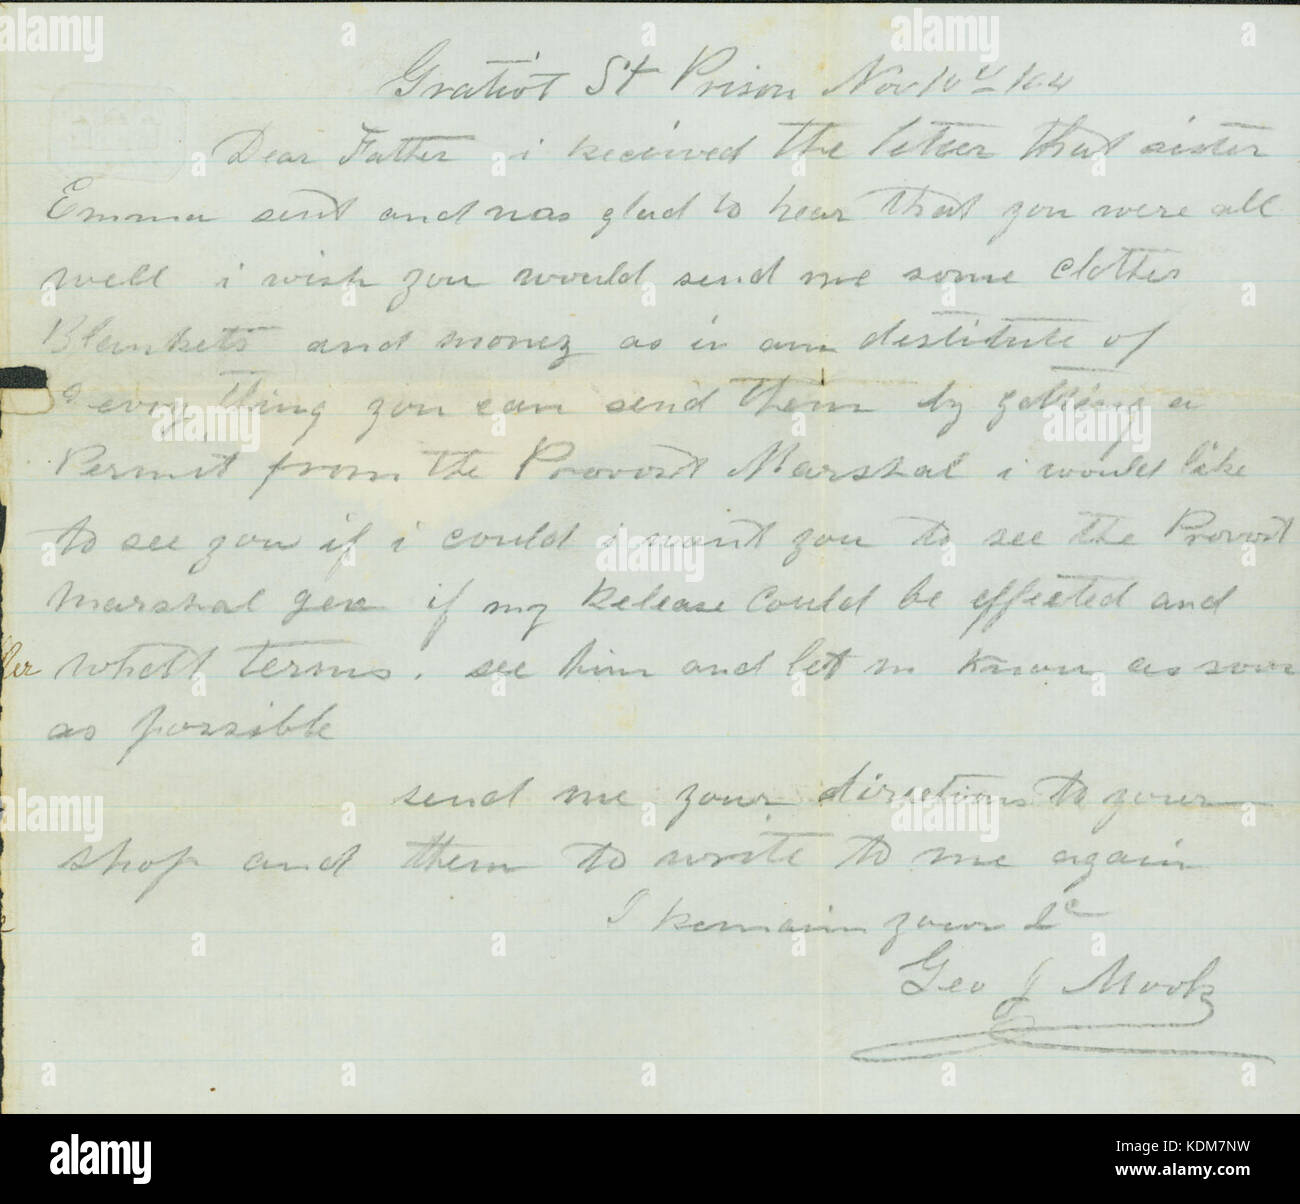 Gratiot St Prison Nov 10th 164
Dear Father i received the letter that sister
Emma sent and was glad to hear that you were all
well i wish you would send me some clothes
Blankets and money as i am destitute of
every thing you can send them by getting a
Permit from the Provost Marshal i would like
to see you if i could i want you to see the Provost
Marshal gen if my Release could be effected and
whatt terms. see him and let m know as soon
as possible
send me your directions to your
shop and them to write to me again
I Remain your &c
Geo J Mook
alamy
Image ID: KDM7NW
www.alamy.com